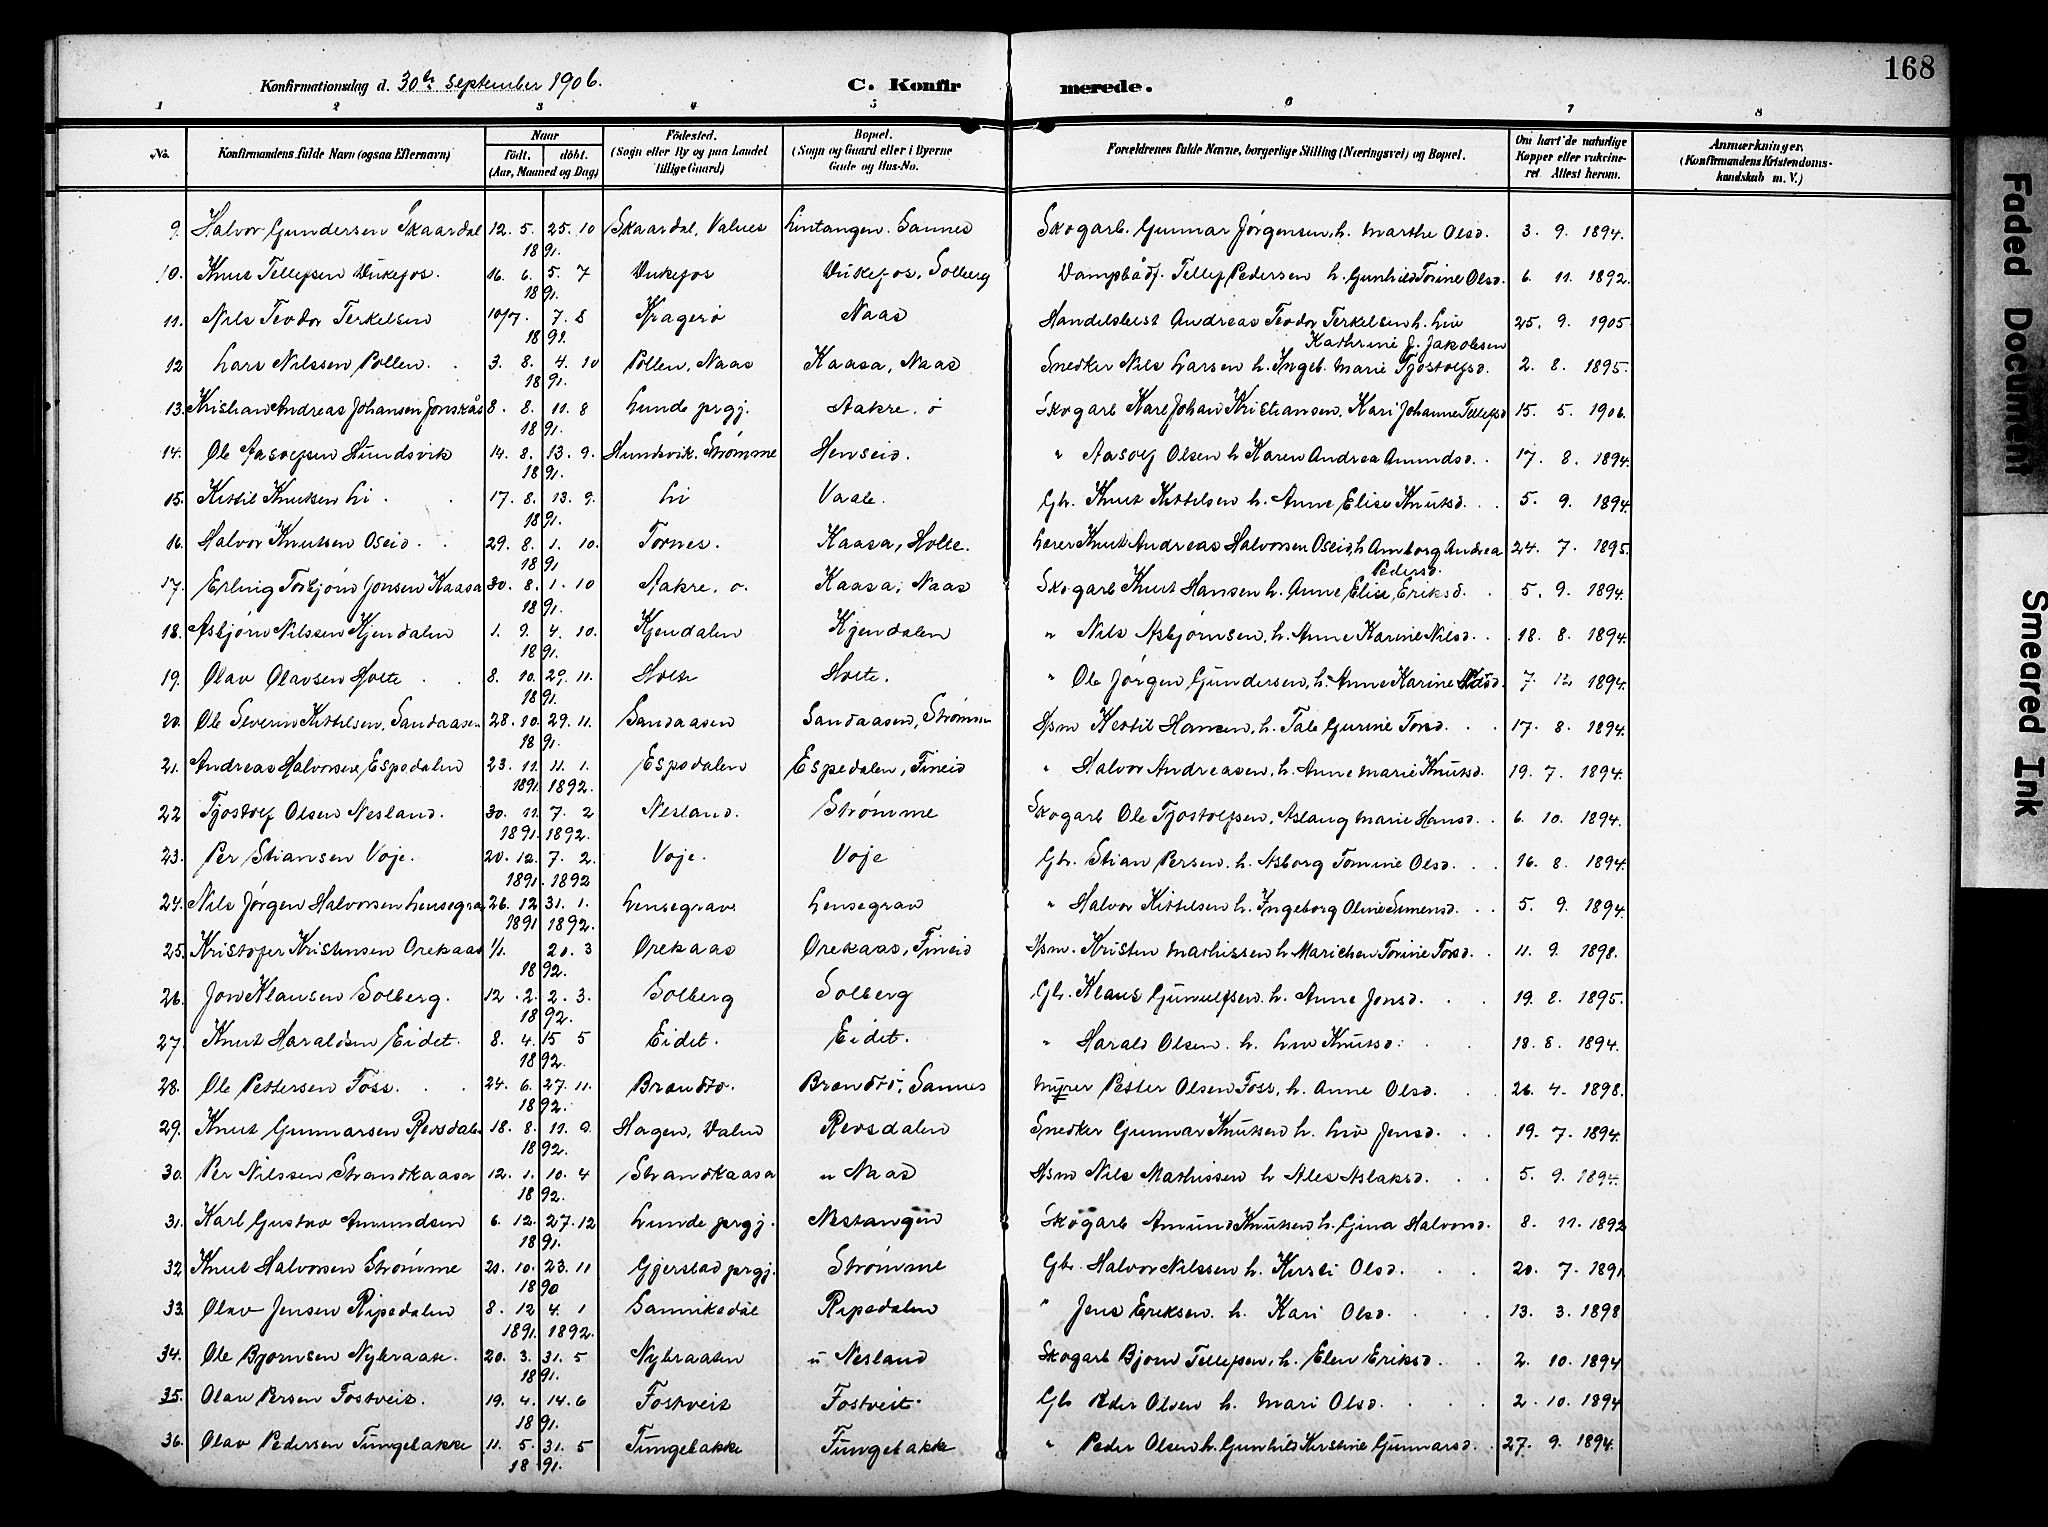 168
Konfirmationsdag d. 30te September 1906.
C. Konfirmerede.
1 2 3 4 5 6 7 8
No. Konfirmandens fulde Navn (ogsaa Efternavn) Naar født. døbt. (Aar, Maaned og Dag) Fødested. (Sogn eller By og paa Landet tillige Gaard) Bopæl. (Sogn og Gaard eller i Byerne Gade og Hus-No. Forældrenes fulde Navne, borgerlige Stilling (Næringsvei) og Bopæl. Om havt de naturlige Kopper eller vakcineret. Attest herom. Anmærkninger. (Konfirmandens Kristendomskundskab m. V.)
9. Halvor Gundersen Skaardal 12. 5. 25. 10 1891. Skaardal, Sannes Skogarb. Gunnar Jørgensen, h. Marthe Olsd. 3. 9. 1894.
10. Knut Tellefsen Vukefos. 16. 6. 5. 7 1891. Vukefos Vukefos, Solberg Tellef Pedersen h. Gunhild Torine Olsd. 6. 11. 1892.
11. Nils Teodor Terkelsen 10/7. 7. 8 1891. Kragerø Naas Andreas Teodor Terkelsen h. Liv Kathrine J. Jakobsen 25. 9. 1905.
12 Lars Nilssen Pollen. 3. 8. 4. 10 1891. Pollen, Naas Kaasa, Naas Snedker Nils Larsen h. Ingeb. Marie Tjostolfsd. 2. 8. 1895.
13. Kristian Andreas Johansen Jonskås 8. 8. 11. 8 1891. Lunde prgj. Aakre. ø Skogarb Karl Johan Kristiansen, Kari Johanne Tellefsd 15. 5. 1906.
14. Ole Aasolfsen Hundsvik 14. 8. 13. 9. 1891. Hundsvik. Strømme Henseid. " Aasolf Olsen h Karen Andrea Amundsd. 17. 8. 1894.
15. Kittil Knutsen Li. 17. 8. 13. 9. 1891. Li Vaale. Gbr. Knut Kittelsen h. Anne Elise Knutsd. 5. 9. 1894.
16. Halvor Knutsen Oseid. 29. 8. 1. 10. 1891 Tornes. Kaasa, Holte. Lærer Knut Andreas Halvorsen Oseid, h Amborg Andrea Pedersd. 24. 7. 1895.
17. Erling Torbjørn Jonsen Kaasa 30. 8. 1. 10 1891. Aakre. ø. Kaasa, Naas Skogarb Knut Hansen h. Anne Elise Eriksd. 5. 9. 1894.
18. Asbjørn Nilssen Kjendalen 1. 9. 4. 10. 1891. Kjendalen Kjendalen " Nils Asbjørnsen, h. Anne Karine Nilsd. 18. 8. 1894.
19. Olav Olavsen Holte. 8. 10. 29. 11. 1891. Holte Holte. " Ole Jørgen Gundersen, h. Anne Karine 7. 12 1894.
20. Ole Severin Kittilsen, Sandaasen 28. 10. 29. 11. 1891. Sandaasen Sandaasen, Strømm Hsm Kettil Hansen, h. Tale Gurine Torsd. 17. 8. 1894.
21. Andreas Halvorsen Espedalen 23. 11. 11. 1. 1891 1892. Espedalen Espedalen, Fineid " Halvor Andreasen, h. Anne Marie Knutsd. 19. 7. 1894.
22 Tjostolf Olsen Nesland. 30. 11. 7. 2 1891. 1892. Nesland. Strømme Skogarb Ole Tjostolfsen, Aslaug Marie Hansd. 6. 10. 1894.
23. Per Stiansen Voje. 20. 12. 7. 2. 1891. 1892 Voje. Voje Gbr. Stian Persen. h. Asborg Tomine Olsd. 16. 8. 1894.
24. Nils Jørgen Halvorsen Lensegrav 26. 12 31. 1. 1891 1892. Lensegrav Lensegrav " Halvor Kittelsen h. Ingeborg Oline Simensd. 5. 9. 1894.
25. Kristofer Kristensen Orekaas 1/1. 20. 3 1892. Orekaas Orekaas, Fineid Hsm. Kristen Mathissen h. Marichen Torine Torsd. 11. 9. 1898.
26. Jon Klausen Solberg. 12. 2. 2. 3. 1892. Solberg Solberg Gbr. Klaus Gunulfsen h. Anne Jonsd. 19. 8. 1895.
27. Knut Haraldsen Eidet. 8. 4. 15 5 1892. Eidet. Eidet. " Harald Olsen. h. Liv Knutsd. 18. 8. 1894.
28. Ole Pettersen Foss. 24. 6. 27. 11. 1892. Brandtø. Brandtø, Sannes Murer Petter Olsen Foss, h. Anne Olsd. 26. 4. 1898.
29. Knut Gunnarsen Revsdalen 18. 8. 11. 9. 1892. Hagen, Revsdalen Snedker Gunnar Knutsen h. Liv Jensd. 19. 7. 1894.
30. Per Nilssen Strandkaasa 12. 1. 10. 4 1892. Strandkaasa u Naas Hsm Nils Mathissen h Ales Aslaksd. 5. 9. 1894.
31. Karl Gustav Amundsen 6. 12. 27. 12 1891. Lunde prgj. Nestangen Skogarb Amund Knutsen h. Gina Halvorsd. 8. 11. 1892
32 Knut Halvorsen Strømme 21. 10. 23. 11 1890 Gjerstad prgj. Strømme Gbr. Halvor Nilssen h. Kirsti Olsd. 20. 7. 1891
33. Olav Jensen Ripedalen 8. 12 4. 1 1891. 1892. Sannikedal Ripedalen " Jens Eriksen. h. Kari Olsd. 13. 3. 1898
34. Ole Bjørnsen Nybraate. 20. 3. 31. 5 1891. Nybraaten u Nesland Skogarb Bjørn Tellefsen, h. Elen Eriksd. 2. 10. 1894
35. Olav Persen Fostveit. 19. 4. 14. 6 1891. Fostveit Fostveit. Gbr Peder Olsen h. Mari Olsd. 2. 10. 1894
36. Olav Pedersen Tungebakke 11. 5. 31. 5 1891. Tungebakke Tungebakk " Peder Olsen h. Gunhild Kirstine Gunnarsd. 27. 9. 1894.
Faded Document
Smeared Ink